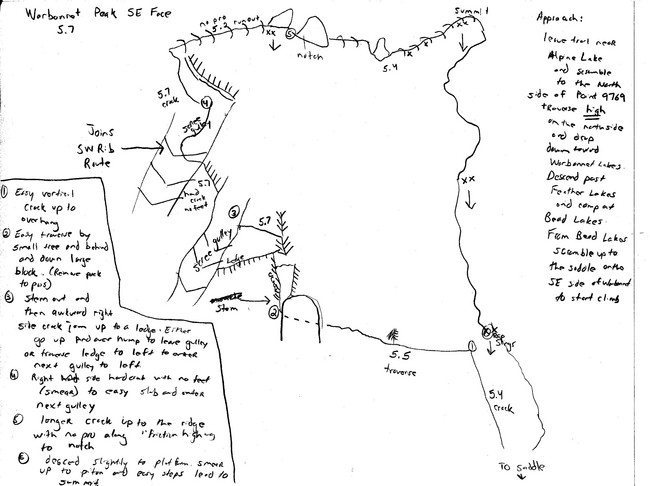 Warbonnet Peak SE Face
5.7
no pro
5.2 runout
xx
5
notch
summit
x x
5.4
xx
5.7
crack
4
scree gulley
Joins
SW Rib
Route
5.7
hand
crack
no feet
3
5.7
scree gulley
Ledge
Stem
2
5.5
traverse
1
rap
slings
5.4
crack
To saddle
xx
Approach:
leave trail near
Alpine Lake
and scramble
to the North
side of Point 9769
traverse high
on the north side
and drop
down toward
Warbonnet Lakes.
Descend past
Feather Lakes
and camp at
Bead Lakes.
From Bead Lakes
scramble up to
the saddle on the
SE side of Warbonnet
to start climb
1 Easy vertical
crack up to
overhang
2 Easy traverse by
small tree and behind
and down large
block. (Remove pack
to pass)
3 Stem out and
then awkward right
side crack jam up to a ledge. Either
go up and over hump to leave gulley
or traverse ledge to left to enter
next gulley to left
4 Right side hand crack with no feet
(smear) to easy slab and enter
next gulley
5 longer crack up to the ridge
with no pro along "friction highway"
to notch
6 descend slightly to platform. smear
up to piton and easy steps lead to
summit